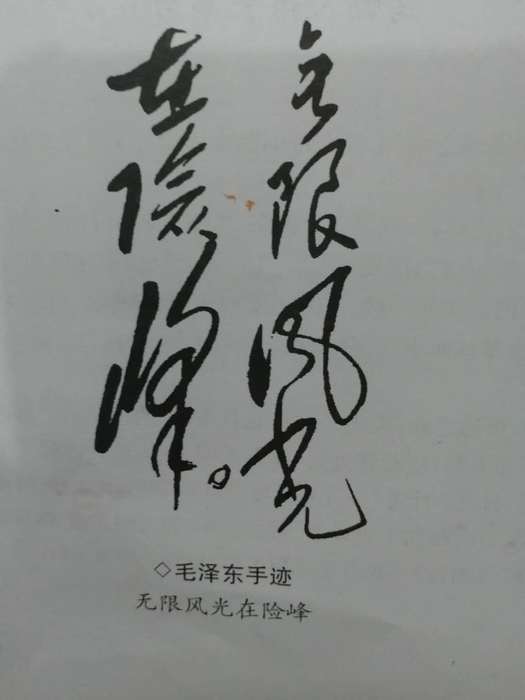 无限风光
在险峰。
◇毛泽东手迹
无限风光在险峰